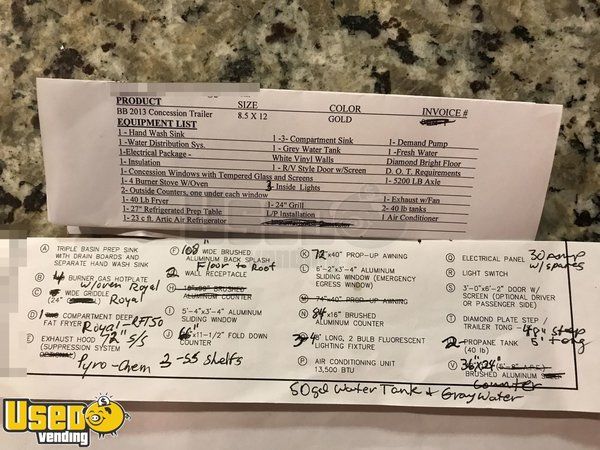 PRODUCT SIZE COLOR INVOICE #
BB 2013 Concession Trailer 8.5 X 12 GOLD
EQUIPMENT LIST
1 - Hand Wash Sink 1 -3- Compartment Sink 1- Demand Pump
1 -Water Distribution Sys. 1 - Grey Water Tank 1 -Fresh Water
1-Electrical Package - White Vinyl Walls Diamond Bright Floor
1- Insulation 1 - R/V Style Door w/Screen D. O. T. Requirements
1- Concession Windows with Tempered Glass and Screens 1- 5200 LB Axle
1 - 4 Burner Stove W/Oven 3 Inside Lights
2- Outside Counters, one under each window 1 - Exhaust w/Fan
1 - 40 Lb Fryer 1 - 24" Grill 2 - 40 lb tanks
1 - 27" Refrigerated Prep Table L/P Installation 1 Air Conditioner
1 - 23 c ft. Artic Air Refrigerator
A TRIPLE BASIN PREP SINK
WITH DRAIN BOARDS AND
SEPARATE HAND WASH SINK
B 4 BURNER GAS HOTPLATE
w/oven Royal
C WIDE GRIDDLE
(24" ) Royal
D COMPARTMENT DEEP
FAT FRYER Royal-RFT50
E EXHAUST HOOD 72" S/S
(SUPPRESSION SYSTEM
OPTIONAL)
Pyro-Chem 3-SS shelfs
F 102" WIDE BRUSHED
ALUMINUM BACK SPLASH
Floor to Roof
2 WALL RECEPTACLE
H 18"x99" BRUSHED
ALUMINUM COUNTER
I 5'-4"x3'-4" ALUMINUM
SLIDING WINDOW
J 66"x11-1/2" FOLD DOWN
COUNTER
K 72"x40" PROP-UP AWNING
L 6'-2"x3'-4" ALUMINUM
SLIDING WINDOW (EMERGENCY
EGRESS WINDOW)
M 74"x40" PROP-UP AWNING
N 84"x16" BRUSHED
ALUMINUM COUNTER
48' LONG, 2 BULB FLUORESCENT
LIGHTING FIXTURE
P AIR CONDITIONING UNIT
13,500 BTU
Q ELECTRICAL PANEL 30 amp
w/spares
R LIGHT SWITCH
S 3'-0"x6'-2" DOOR W/
SCREEN (OPTIONAL DRIVER
OR PASSENGER SIDE)
T DIAMOND PLATE STEP /
TRAILER TONG - step
5' tong
2 PROPANE TANK
(40 lb)
V 36"x24"
BRUSHED ALUMINUM
counter
50gal Water Tank + Gray Water
USED
vending